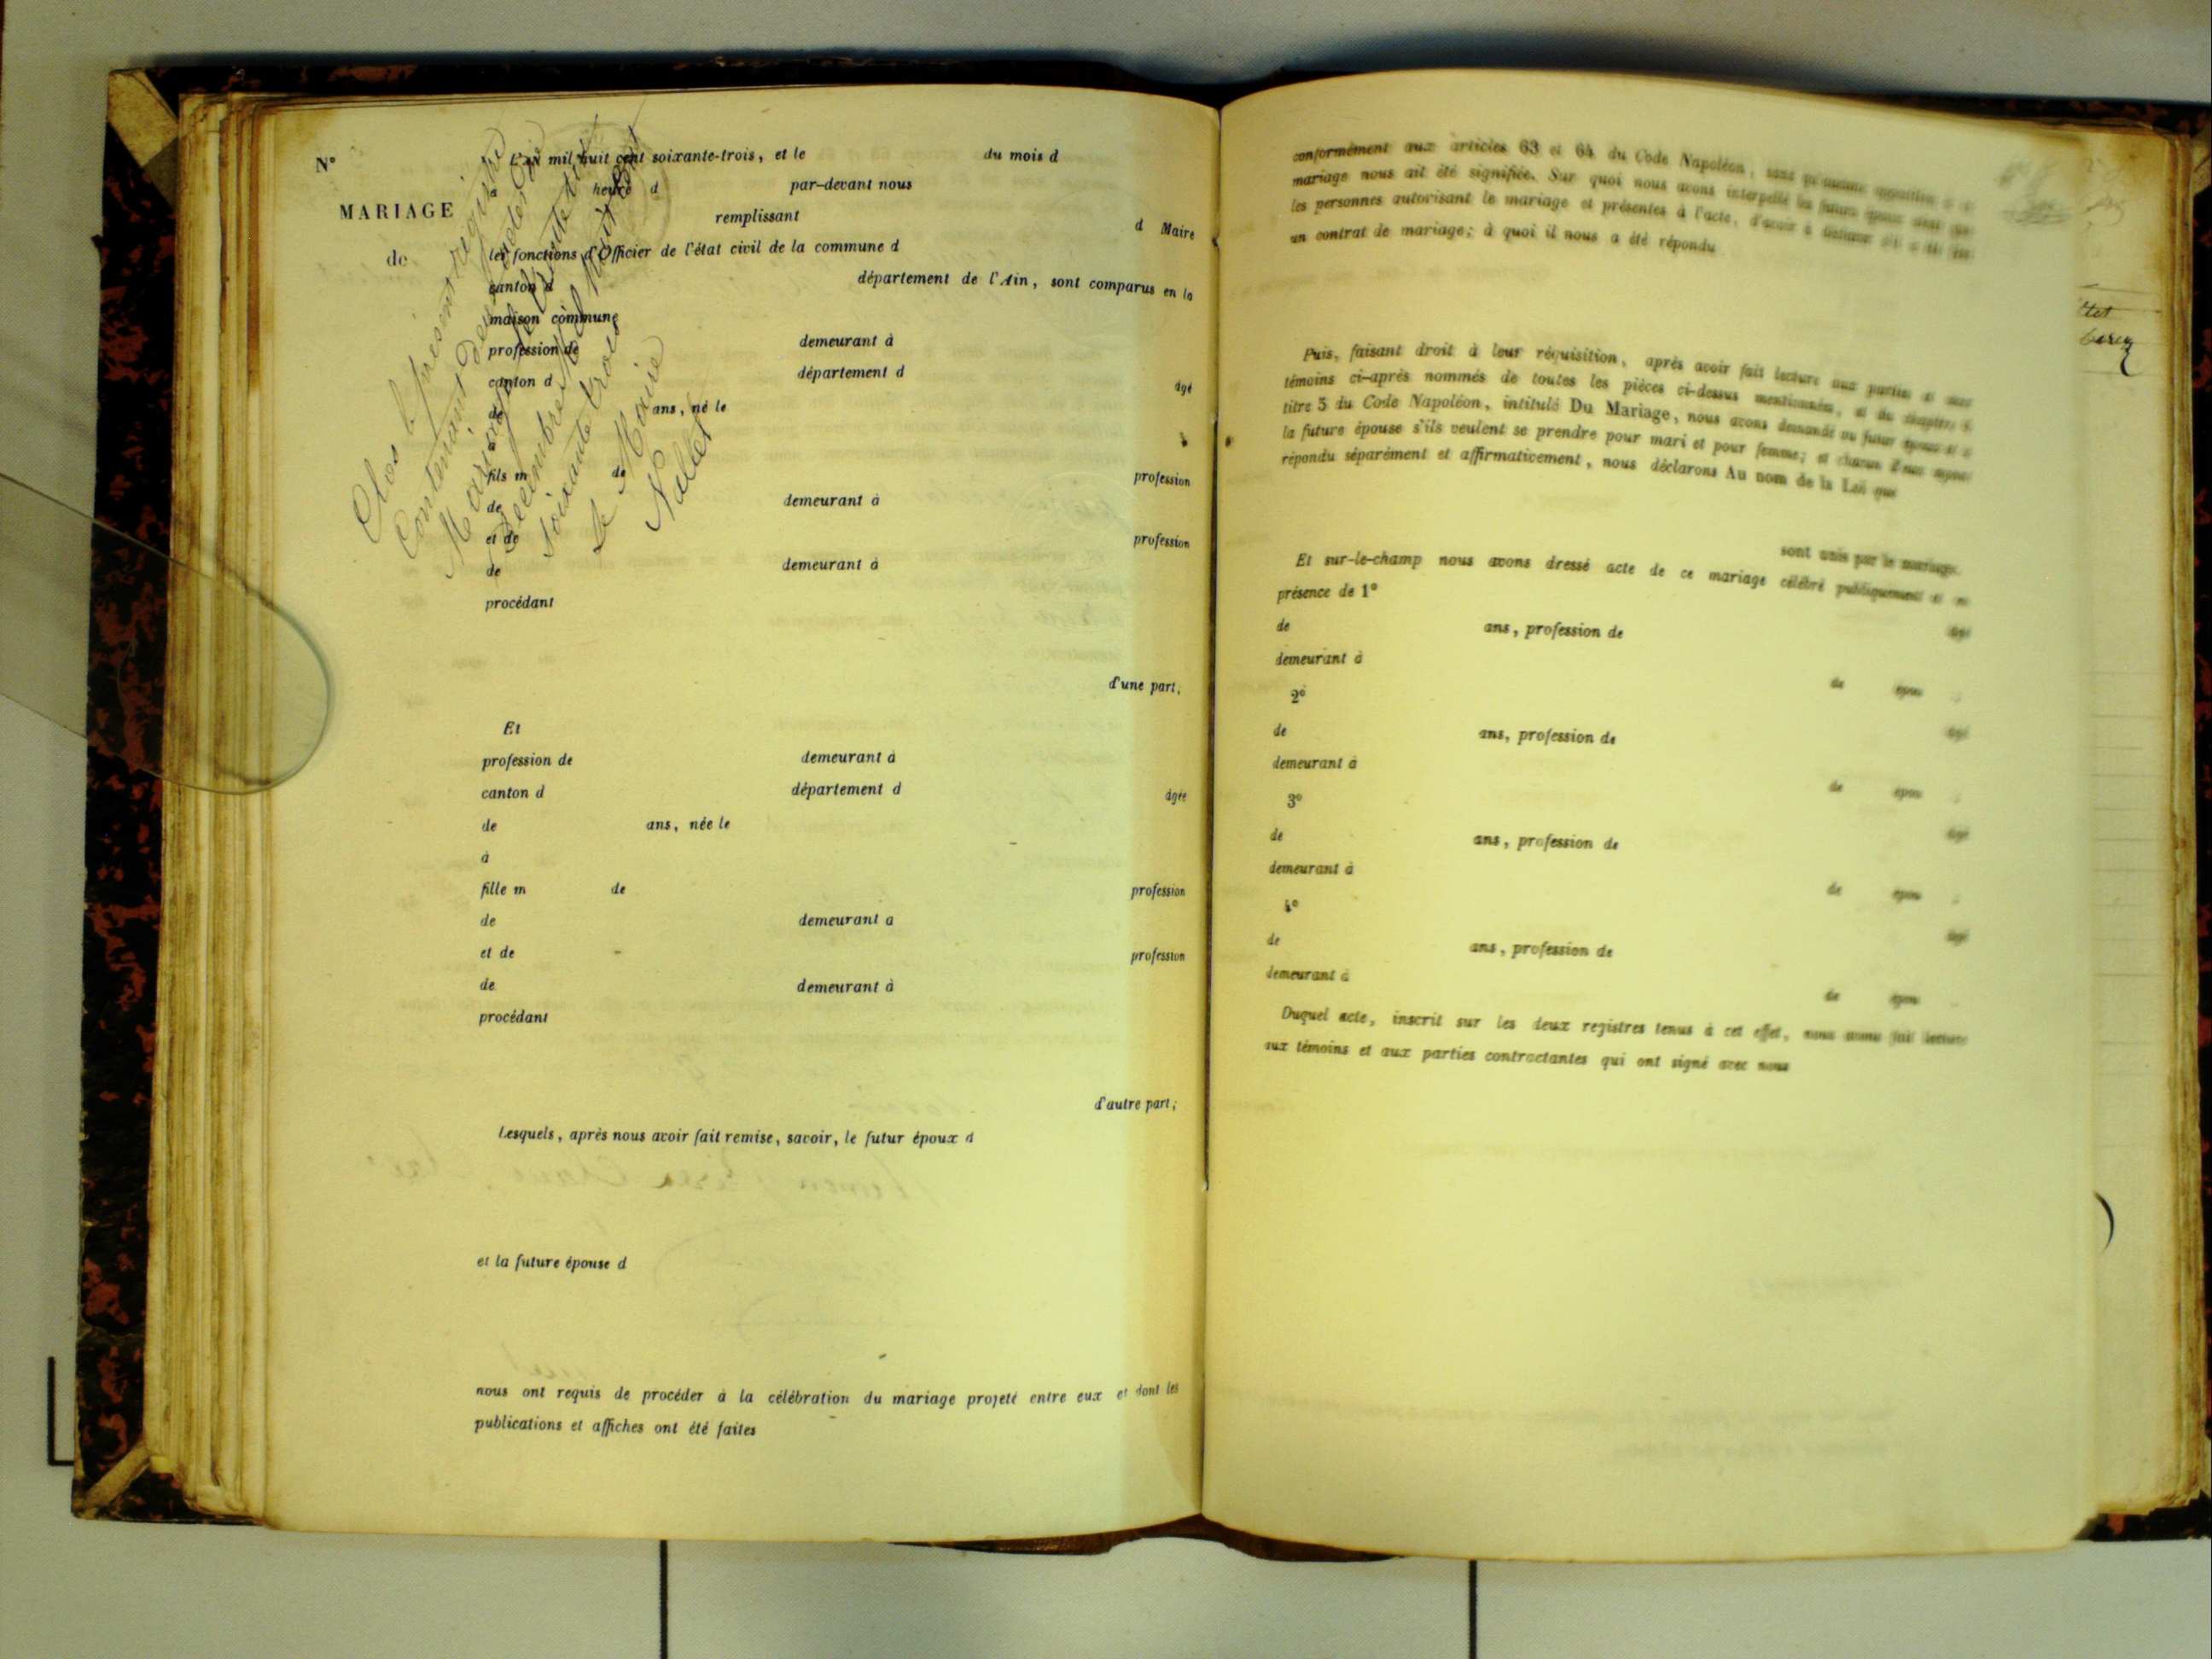 N°
MARIAGE
de
L'an mil huit cent soixante-trois, et le du mois d
à heure d par-devant nous
remplissant d Maire
les fonctions d'Officier de l'état civil de la commune d
canton d département de l'Ain, sont comparus en la
maison commune
profession de demeurant à
canton d département d âgé
de ans, né le
à
fils m de profession
de demeurant à
et de profession
de demeurant à
procédant
d'une part;
Et
profession de demeurant à
canton d département d âgée
de ans, née le
à
fille m de profession
de demeurant a
et de profession
de demeurant à
procédant
d'autre part;
Lesquels, après nous avoir fait remise, savoir, le futur époux d
et la future épouse d
nous ont requis de procéder à la célébration du mariage projeté entre eux et dont les
publications et affiches ont été faites
Clos le présent registre
Contenant
Mariages
Décembre Mil huit cent
soixante trois
Le Maire
Nallet
conformément aux articles 63 et 64 du Code Napoléon, sans qu'aucune opposition
mariage nous ait été signifiée. Sur quoi nous avons interpellé les futurs époux
les personnes autorisant le mariage et présentes à l'acte, d'avoir à
un contrat de mariage; à quoi il nous a été répondu
Puis, faisant droit à leur réquisition, après avoir fait lecture aux parties et aux
témoins ci-après nommés de toutes les pièces ci-dessus mentionnées, et du chapitre
titre 5 du Code Napoléon, intitulé Du Mariage, nous avons demandé au futur époux et à
la future épouse s'ils veulent se prendre pour mari et pour femme; et chacun d'eux ayant
répondu séparément et affirmativement, nous déclarons Au nom de la Loi que
sont unis par le mariage.
Et sur-le-champ nous avons dressé acte de ce mariage célébré publiquement et en
présence de 1°
de ans, profession de âgé
demeurant à
2° de épou
de ans, profession de âgé
demeurant à
3° de épou
de ans, profession de âgé
demeurant à
4° de épou
de ans, profession de âgé
demeurant à
de épou
Duquel acte, inscrit sur les deux registres tenus à cet effet, nous avons fait lecture
aux témoins et aux parties contractantes qui ont signé avec nous